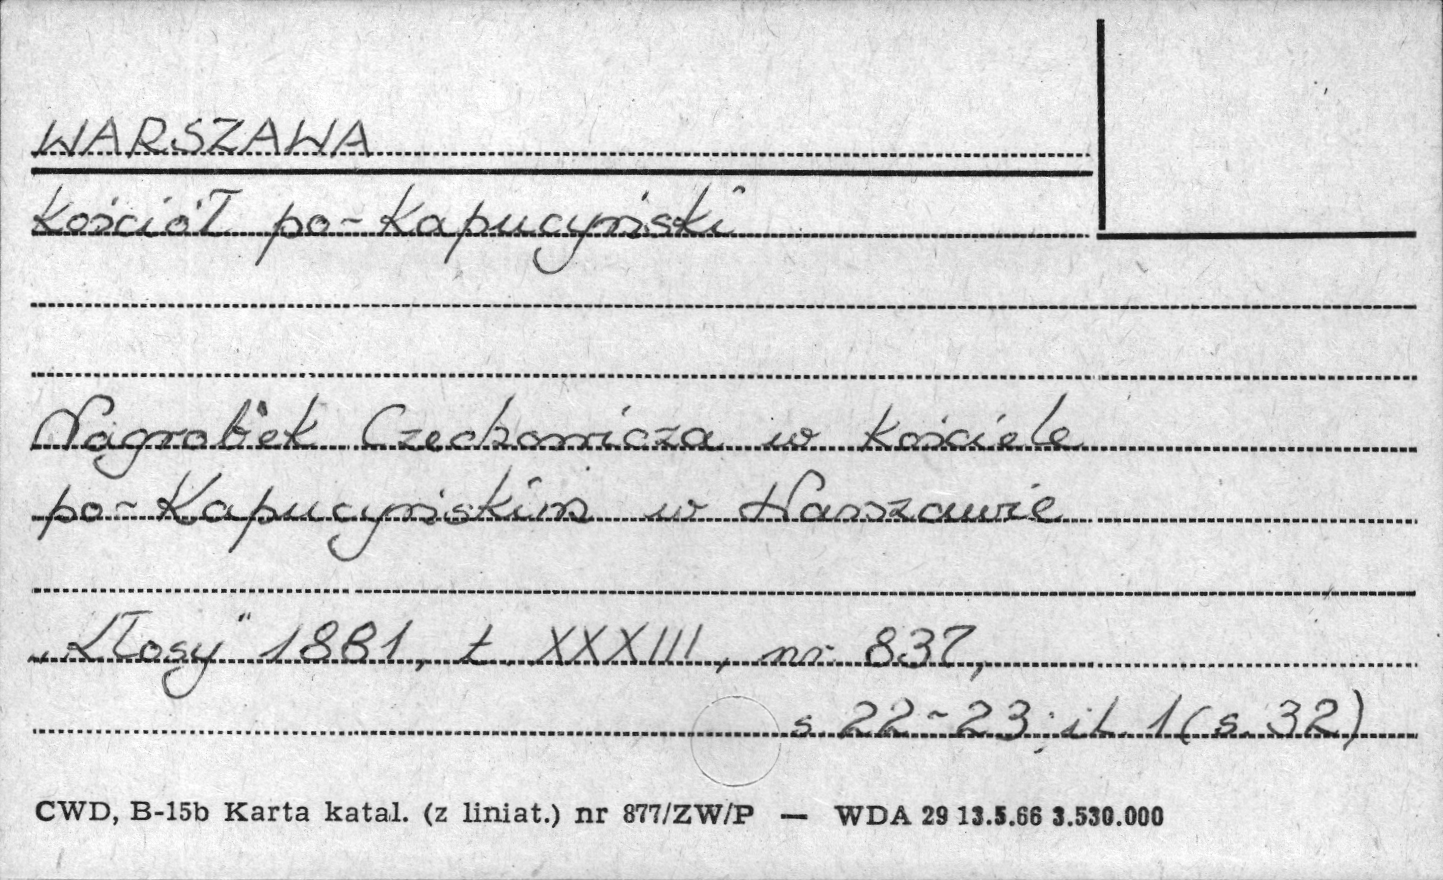 WARSZAWA
Kościół po-Kapucyński
Nagrobek Czechowicza w kościele
po-Kapucyńskim w Warszawie
„Kłosy" 1881, t. XXXIII, nr. 837,
s. 22-23; il. 1 (s. 32)
CWD, B-15b Karta katal. (z liniat.) nr 877/ZW/P — WDA 29 13.5.66 3.530.000